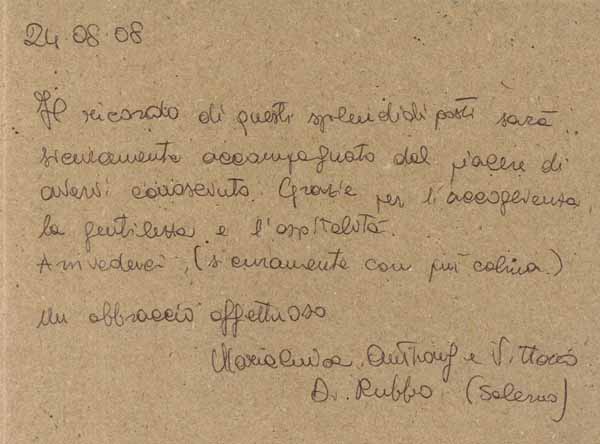 24.08.08
Il ricordo di questi splendidi posti sarà
sicuramente accompagnato dal piacere di
avervi conosciuto. Grazie per l'accoglienza,
la gentilezza e l'ospitalità.
Arrivederci, (sicuramente con più calma.)
Un abbraccio affettuoso
Marialuisa, Anthony e Vittorio
Di Rubbo (Salerno)